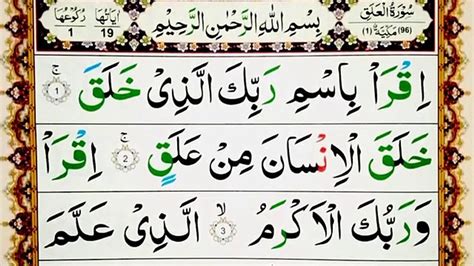 سُوْرَةُ الْعَلَقِ
(96) مَكِّيَّةٌ (1)
بِسْمِ اللهِ الرَّحْمٰنِ الرَّحِيْمِ
اٰيَاتُهَا 19
رُكُوْعُهَا 1
اِقْرَاْ بِاسْمِ رَبِّكَ الَّذِىْ خَلَقَ ۚ ۝1
خَلَقَ الْاِنْسَانَ مِنْ عَلَقٍ ۚ ۝2 اِقْرَاْ
وَرَبُّكَ الْاَكْرَمُ ۙ ۝3 الَّذِىْ عَلَّمَ